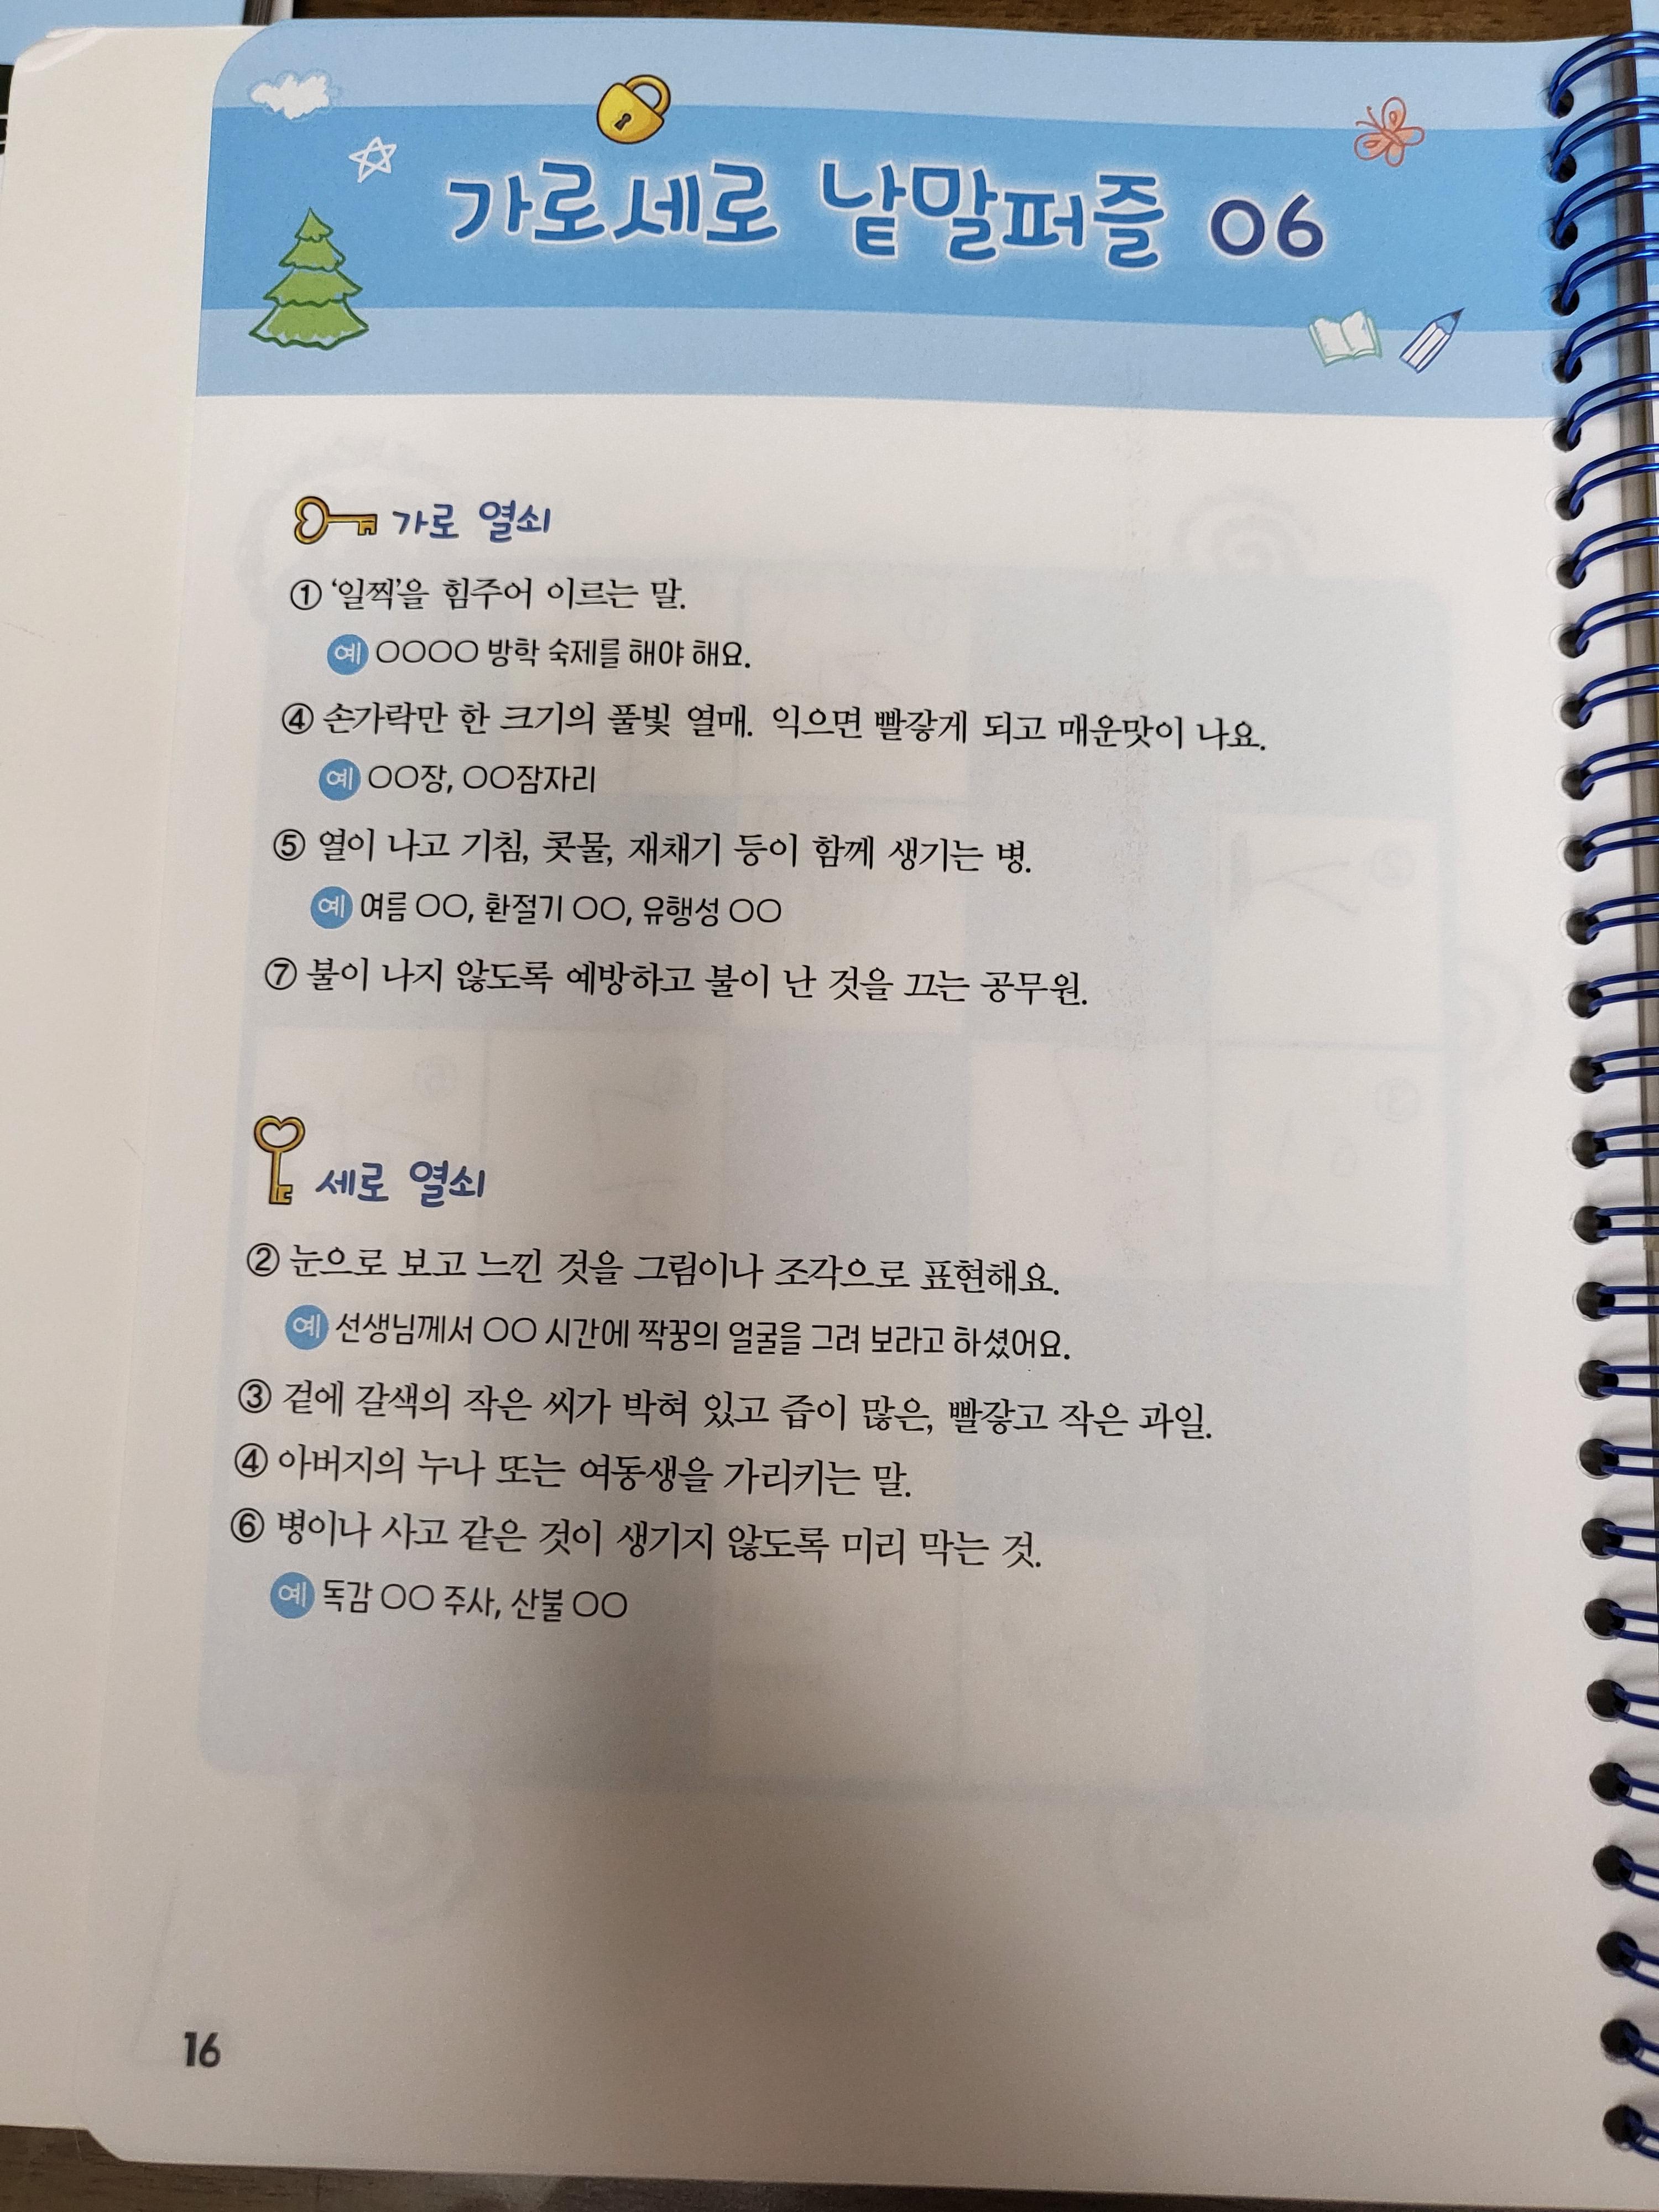 가로세로 낱말퍼즐 06
가로 열쇠
① ‘일찍’을 힘주어 이르는 말.
예 ○○○○ 방학 숙제를 해야 해요.
④ 손가락만 한 크기의 풀빛 열매. 익으면 빨갛게 되고 매운맛이 나요.
예 ○○장, ○○잠자리
⑤ 열이 나고 기침, 콧물, 재채기 등이 함께 생기는 병.
예 여름 ○○, 환절기 ○○, 유행성 ○○
⑦ 불이 나지 않도록 예방하고 불이 난 것을 끄는 공무원.
세로 열쇠
② 눈으로 보고 느낀 것을 그림이나 조각으로 표현해요.
예 선생님께서 ○○ 시간에 짝꿍의 얼굴을 그려 보라고 하셨어요.
③ 겉에 갈색의 작은 씨가 박혀 있고 즙이 많은, 빨갛고 작은 과일.
④ 아버지의 누나 또는 여동생을 가리키는 말.
⑥ 병이나 사고 같은 것이 생기지 않도록 미리 막는 것.
예 독감 ○○ 주사, 산불 ○○
16